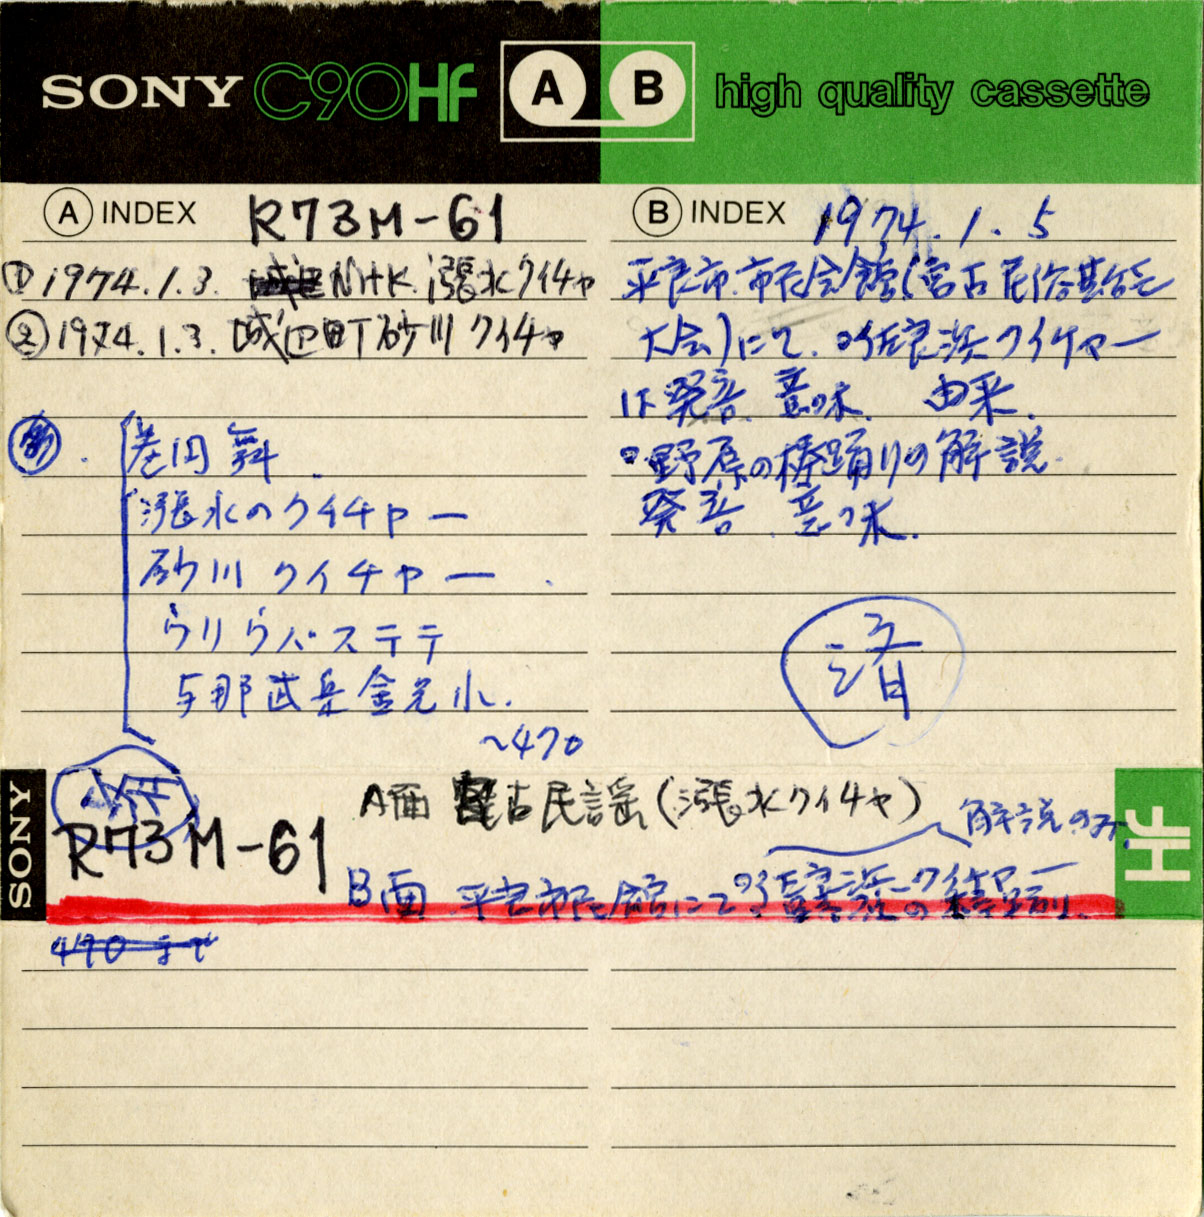 SONY C90HF A B high quality cassette
A INDEX R73M-61
① 1974.1.3. NHK 漲水クイチャ
② 1974.1.3. 城辺町砂川クイチャ
巻 舞
漲水のクイチャー
砂川クイチャー
ウリウバステテ
与那武岳金兄小.
~470
B INDEX 1974.1.5
平良市.市民会館(宮古民俗芸能
大会)にて.佐良浜クイチャー
は発音.意味.由来.
野原の棒踊りの解説.
発音.意味.
済
SONY
R73M-61
A面 宮古民謡(漲水クイチャ)
解説のみ.
B面.平良市民会館にて佐良浜クイチャー
HF
470まで